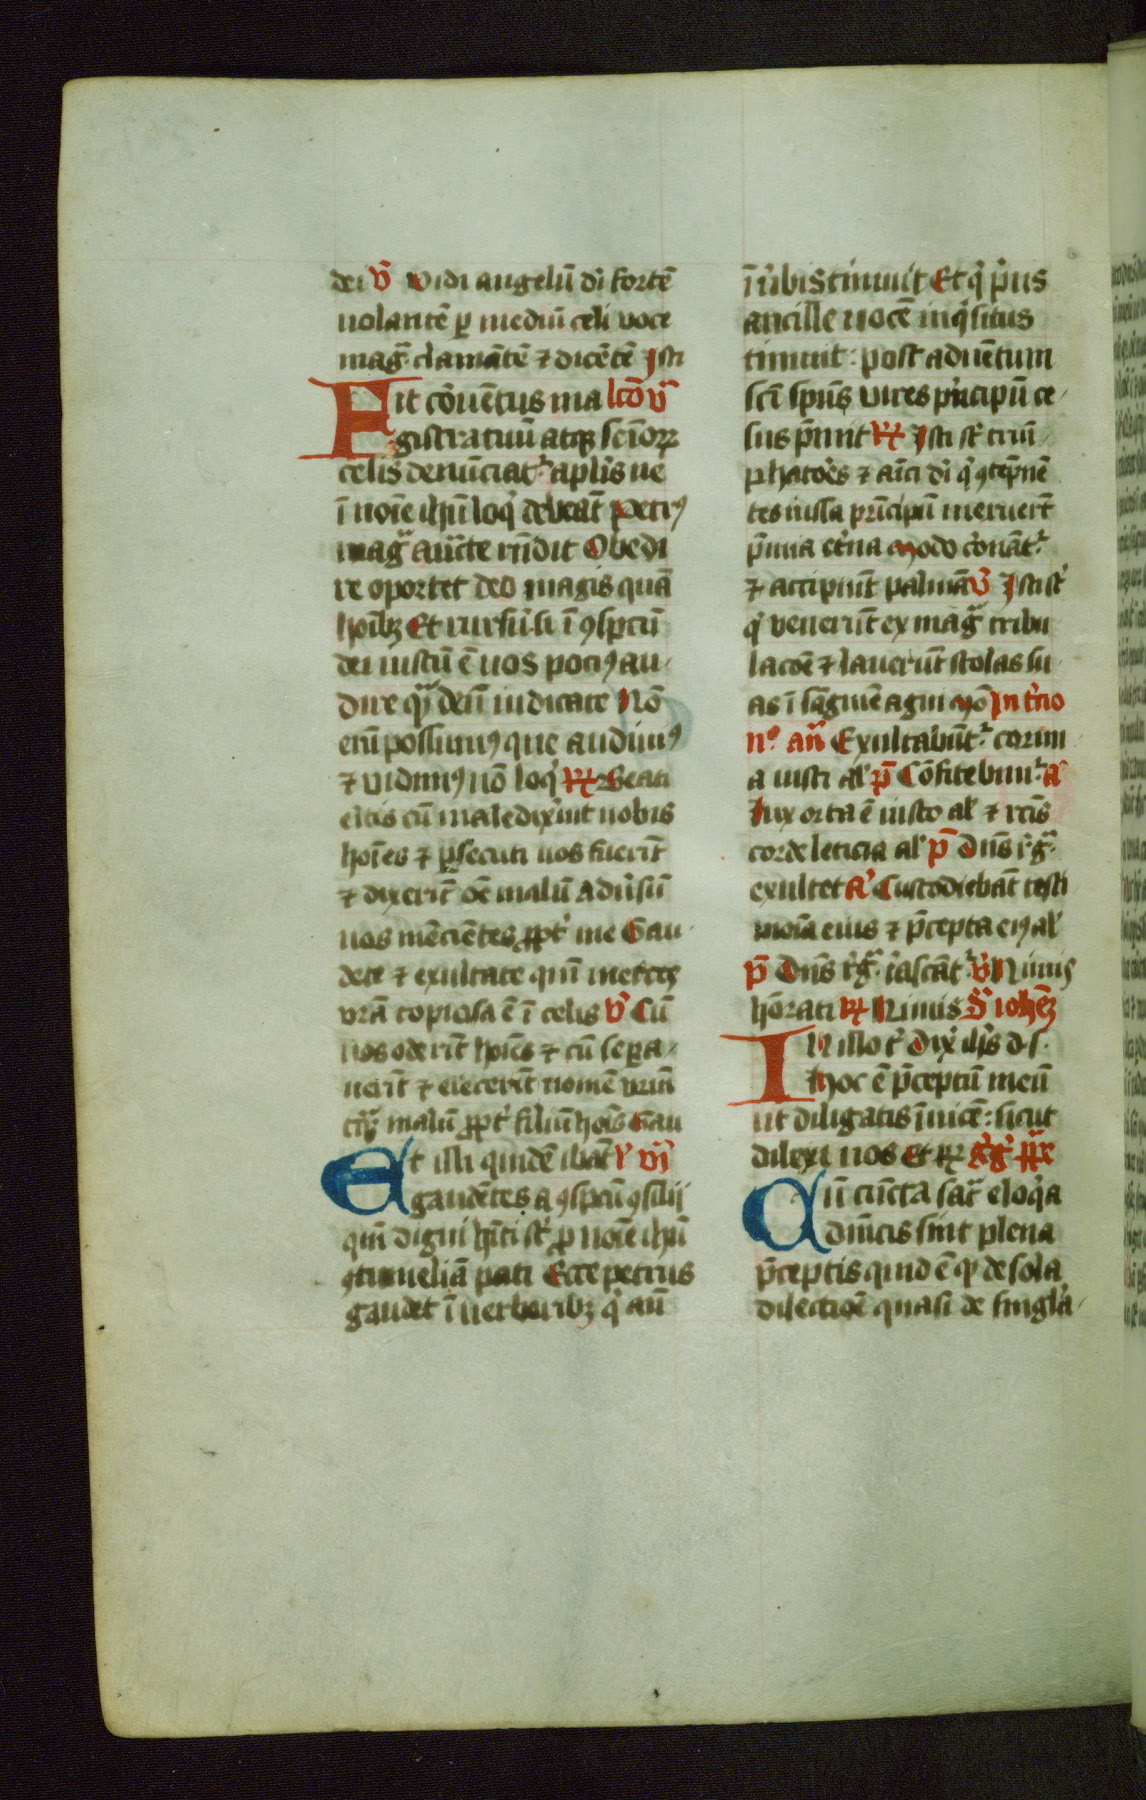 dei v̄ vidi angelū di fortē
uolantē ꝑ mediū celi voce
mag̃ clamātē ⁊ dicētē Isti
Fit cōuētus ma lcō vᵃ
gistratuū atqꝫ senioꝝ
celis denūciat᷑ aplis ne
ī noīe ihū loqͥ debeāt Petrꝰ
mag̃ aucte rn̄dit Obedi
re oportet deo magis quā
hoībꝫ Et rursū si ī ꝯspcū
dei iustū ē uos potiꝰ au-
dire qᵃ deū iudicate Nō
enī possumꝰ que audiuiꝰ
⁊ vidimꝰ nō loqͥ ꝶ Beati
eltis cū maledixīnt uobis
hoīes ⁊ ꝑsecuti uos fuerīt
⁊ dixerīt oē malū aduͥsū
uos mēcientes ꝓpt᷑ me Gau-
dete ⁊ exultate qm̄ merces
vrā copiosa ē ī celis v̄ Cū
uos oderīt hoīes ⁊ cū sepa-
uerīt ⁊ eiecerīt nomē vrm̄
tqᵃ malū ꝓpt᷑ filiū hoīs Gau
Et illi quidē ibāt l̓ viᵃ
gaudētes a ꝯspcū ꝯsilij
qm̄ digni hīti st̄ ꝓ noīe ihū
ꝯtumeliā pati Ecce petrus
gaudet ī uerberibꝫ qͥ an̄
ī u̓bis timuit Et qͥ pͥus
ancille uocē inqͥsitus
timuit: post aduētum
scī spūs vires pͥncipū ce-
sus p̄mit ꝶ Isti st̄ triū-
phatoēs ⁊ aīci di qͥ ꝯtēpnē
tes iussa pͥncipū meruerīt
p̄mia etͥna Modo cōnāt᷑
⁊ accipiūt palmā v̄ Isti st̄
qͥ venerūt ex mag̃ tribu
lacōe ⁊ lauerūt stolas su
as ī sāguīe agni Mō In tͥcio
nͦ an̄ Exultabūt᷑ cornu
a iusti al̓ p̄ Cōfitebim᷑ a
Lux orta ē iusto al̓ ⁊ rc̄is
corde leticia al̓ p̄ Dn̄s rͥg̃
exultet a Custodiebāt testi
monīa eius ⁊ p̄cepta eiꝰ al̓
p̄ Dn̄s rͥg̃ irascāt᷑ v̄ Nimis
hōrati ꝶ Nimis S iohēꝫ
In illo t᷑ dix̄ ihs d. s.
Hoc ē p̄ceptū meū
ut diligatis īuicē: sicut
dilexi uos Et rͦ gͥgͦ ppe
Cū cūcta sac̄ eloqͥa
dn̄icis sint plena
p̄ceptis quid ē qͥ de sola
dilectiōe quasi de singla-